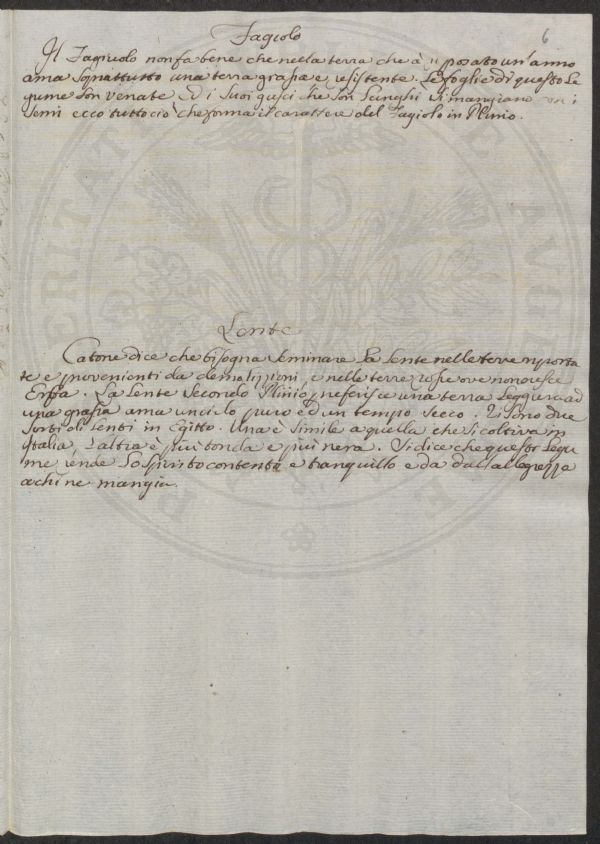 6
Fagiolo
Il Fagiuolo non fa bene che nella terra che à riposato un'anno
ama sopratutto una terra grassa e resistente. Le foglie di questo Le
gume son venate ed i suoi gusci che son Lunghi si mangiano con i
semi ecco tutto ciò che forma il carattere del Fagiolo in Plinio.
Lente
Catone dice che bisogna seminare La Lente nelle terre riporta
te e provenienti da demolizioni, e nelle terre rosse ove non cresce
Erba. La Lente Secondo Plinio preferisce una terra Leggiera ad
una grassa ama un cielo puro ed un tempo secco. Vi sono due
sorti di Lenti in Egitto. Una è simile a quella che si coltiva in
Italia, L'altra è più tonda e più nera. Si dice che questo Legu
me rende Lo spirito contento e tranquillo e da dall'allegrezza
a chi ne mangia.
VERITAT